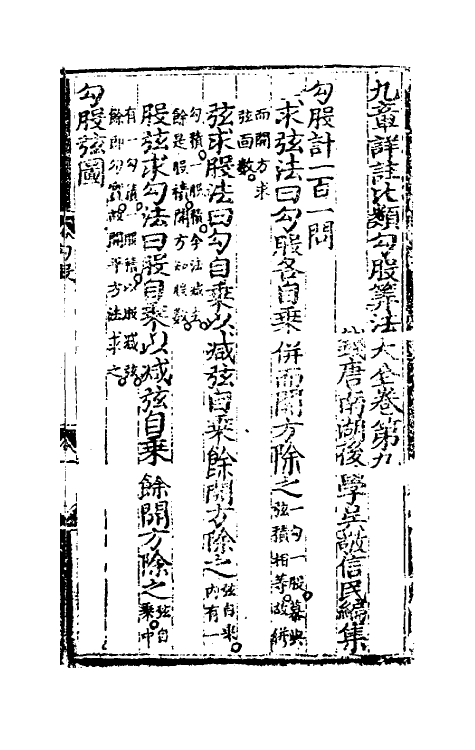 九章詳註比類勾股筭法大全卷第九
錢唐南湖後學吳敬信民編集
勾股計一百一問
求弦法曰勾股各自乘併而開方除之一勾一股冪與弦積相等故併
而開方求弦面數
弦求股法曰勾自乘以減弦自乘餘開方除之弦自乘內有一
勾積一股積今法減去勾積餘是股積開方知股數
股弦求勾法曰股自乘以減弦自乘餘開方除之弦自乘中
有一勾積一股積以股減弦餘即勾實故開平方法求之
勾股弦圖